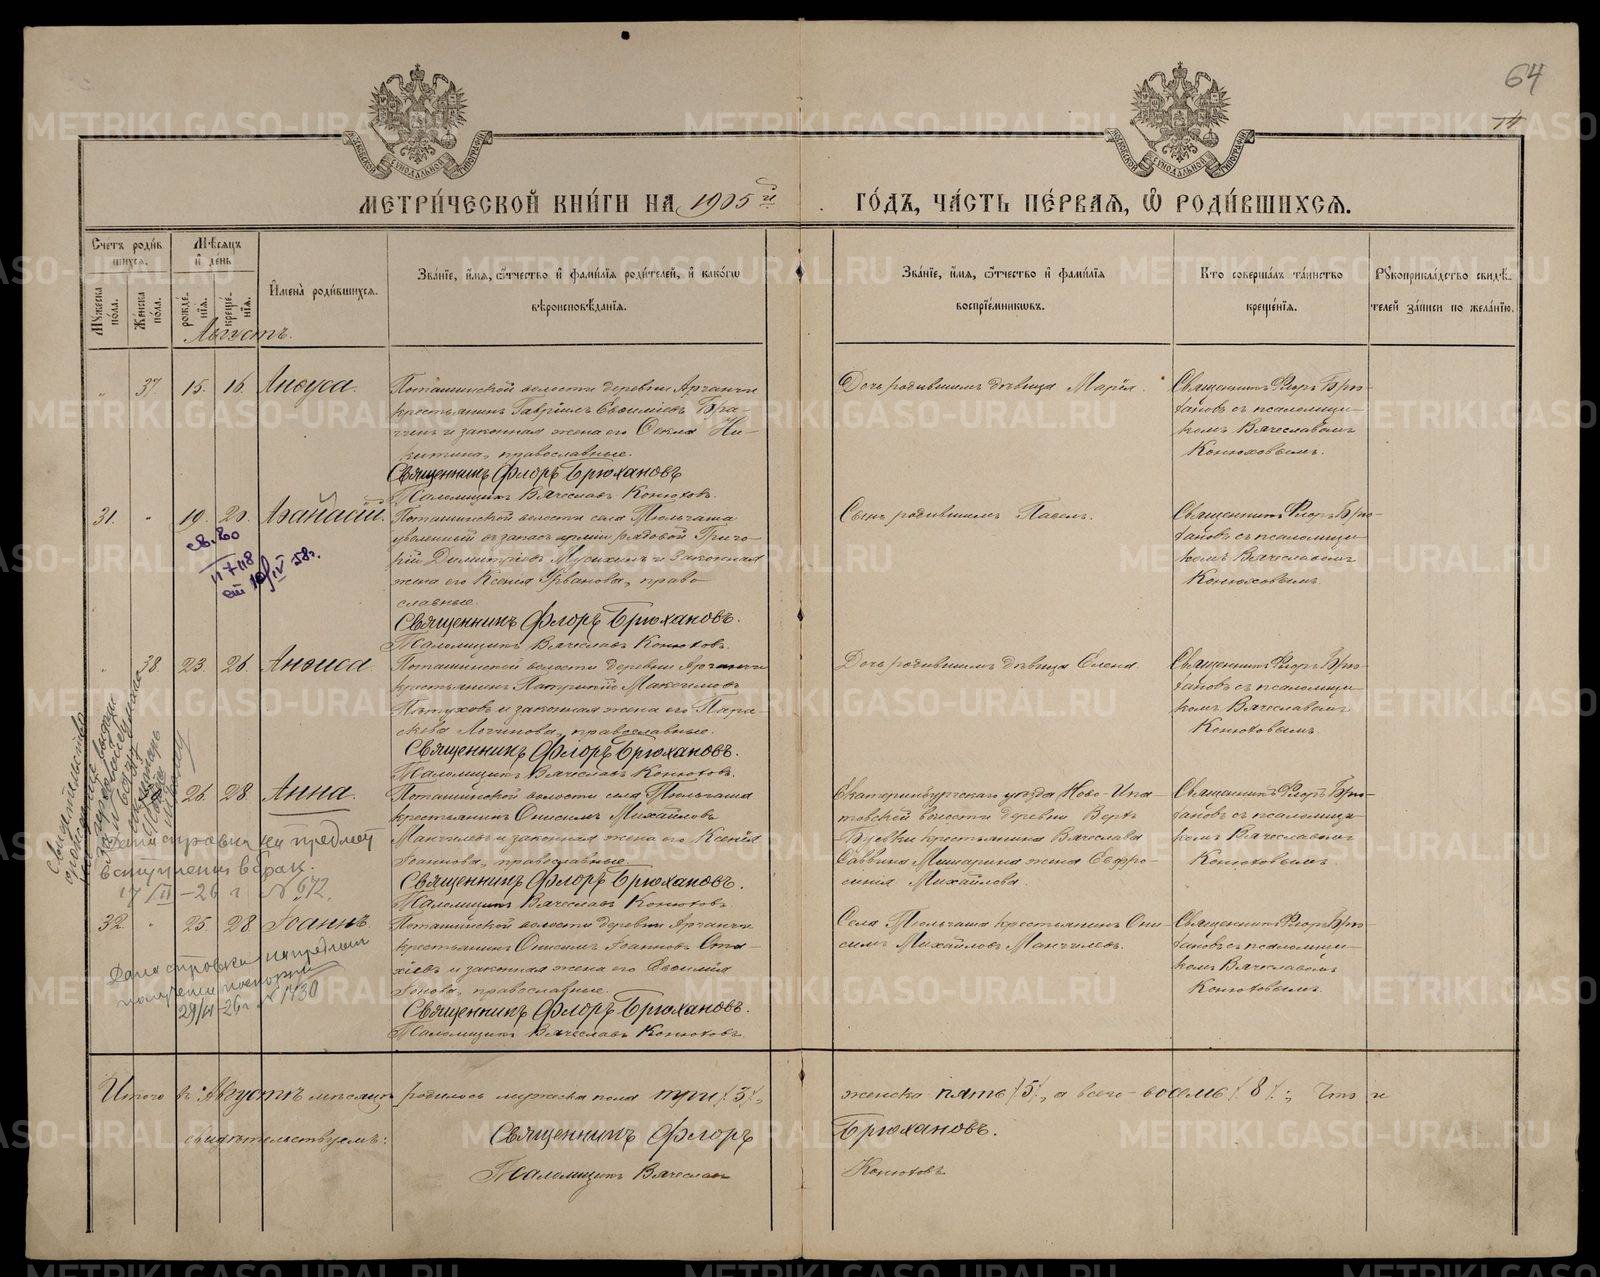 64
74
МЕТРИ́ЧЕСКОЙ КНИ́ГИ НА 1905й ГО́ДЪ, ЧА́СТЬ ПЕ́РВАЯ, Ѡ РОДИ́ВШИХСЯ.
Счетъ роди́вшихся.
Му́жеска по́ла.
Же́нска по́ла.
Мѣ́сяцъ и день
рожде́нїя.
креще́нїя.
И́мена̀ роди́вшихся.
Зва́нїе, и́мя, ѻ́тчество и фами́лїя роди́телей, и како́гѡ
вѣроисповѣ́данїя.
Зва́нїе, и́мя, ѻ́тчество и фами́лїя
воспрїе́мникѡвъ.
Кто соверша́лъ та́инство
креще́нїя.
Рꙋкоприкла́дство свидѣ́-
телей за́писи по жела́нїю.
Августъ.
" 37. 15. 16.
Поташинской волости деревни Арганчи
крестьянинъ Гаврїилъ Евѳимїевъ
и законная жена его Ѳекла Ни-
китина, православные.
Священникъ Флоръ Брюхановъ
Псаломщикъ Вячеславъ Конюховъ.
Дочь родившимъ дѣвица Марїя.
Священникъ Флоръ Брю-
хановъ съ псаломщи-
комъ Вячеславомъ
Конюховымъ.
31. " 19. 20. Аѳанасїй.
Поташинской волости села Тюльгаша
уволенный въ запасъ армїи рядовой Григо-
рїй Димитрїевъ и законная
жена его Ксенїя Урванова, право-
славные.
Священникъ Флоръ Брюхановъ.
Псаломщикъ Вячеславъ Конюховъ.
Сынъ родившимъ Павелъ.
Священникъ Флоръ Брю-
хановъ съ псаломщи-
комъ Вячеславомъ
Конюховымъ.
" 38. 23. 26. Анѳиса
Поташинской волости деревни Арганчи
крестьянинъ Патрикїй Максимовъ
Пѣтуховъ и законная жена его Пара-
скева Логинова, православные.
Священникъ Флоръ Брюхановъ.
Псаломщикъ Вячеславъ Конюховъ.
Дочь родившимъ дѣвица Елена.
Священникъ Флоръ Брю-
хановъ съ псаломщи-
комъ Вячеславомъ
Конюховымъ.
26. 28. Анна.
Поташинской волости села Тюльгаша
крестьянинъ Онисимъ Михайловъ
Манчилевъ и законная жена его Ксенїя
Іоаннова, православные.
Священникъ Флоръ Брюхановъ.
Псаломщикъ Вячеславъ Конюховъ.
Екатеринбургскаго уѣзда Ново-Ипа-
товской волости деревни Верхъ
крестьянина Вячеслава
Саввина Мишарина жена Евфро-
синїя Михайлова.
Священникъ Флоръ Брю-
хановъ съ псаломщи-
комъ Вячеславомъ
Конюховымъ.
Дана справка на предмет
вступления в брак.
17/III-26 г. №672.
32. " 25. 28 Іоаннъ.
Поташинской волости деревни Арганчи
крестьянинъ Онисимъ Іоанновъ Ста-
хїевъ и законная жена его Евѳимїя
Іонова, православные.
Священникъ Флоръ Брюхановъ.
Псаломщикъ Вячеславъ Конюховъ.
Села Тюльгаша крестьянинъ Они-
симъ Михайловъ Манчилевъ.
Священникъ Флоръ Брю-
хановъ съ псаломщи-
комъ Вячеславомъ
Конюховымъ.
Дана справка на предмет
№ 1430
Итого въ Августѣ мѣсяцѣ родилось мужеска пола три (3), женска пять (5), а всего восемь (8); Что и
свидѣтельствуемъ: Священникъ Флоръ Брюхановъ.
Псаломщикъ Вячеславъ Конюховъ
METRIKI.GASO-URAL.RU